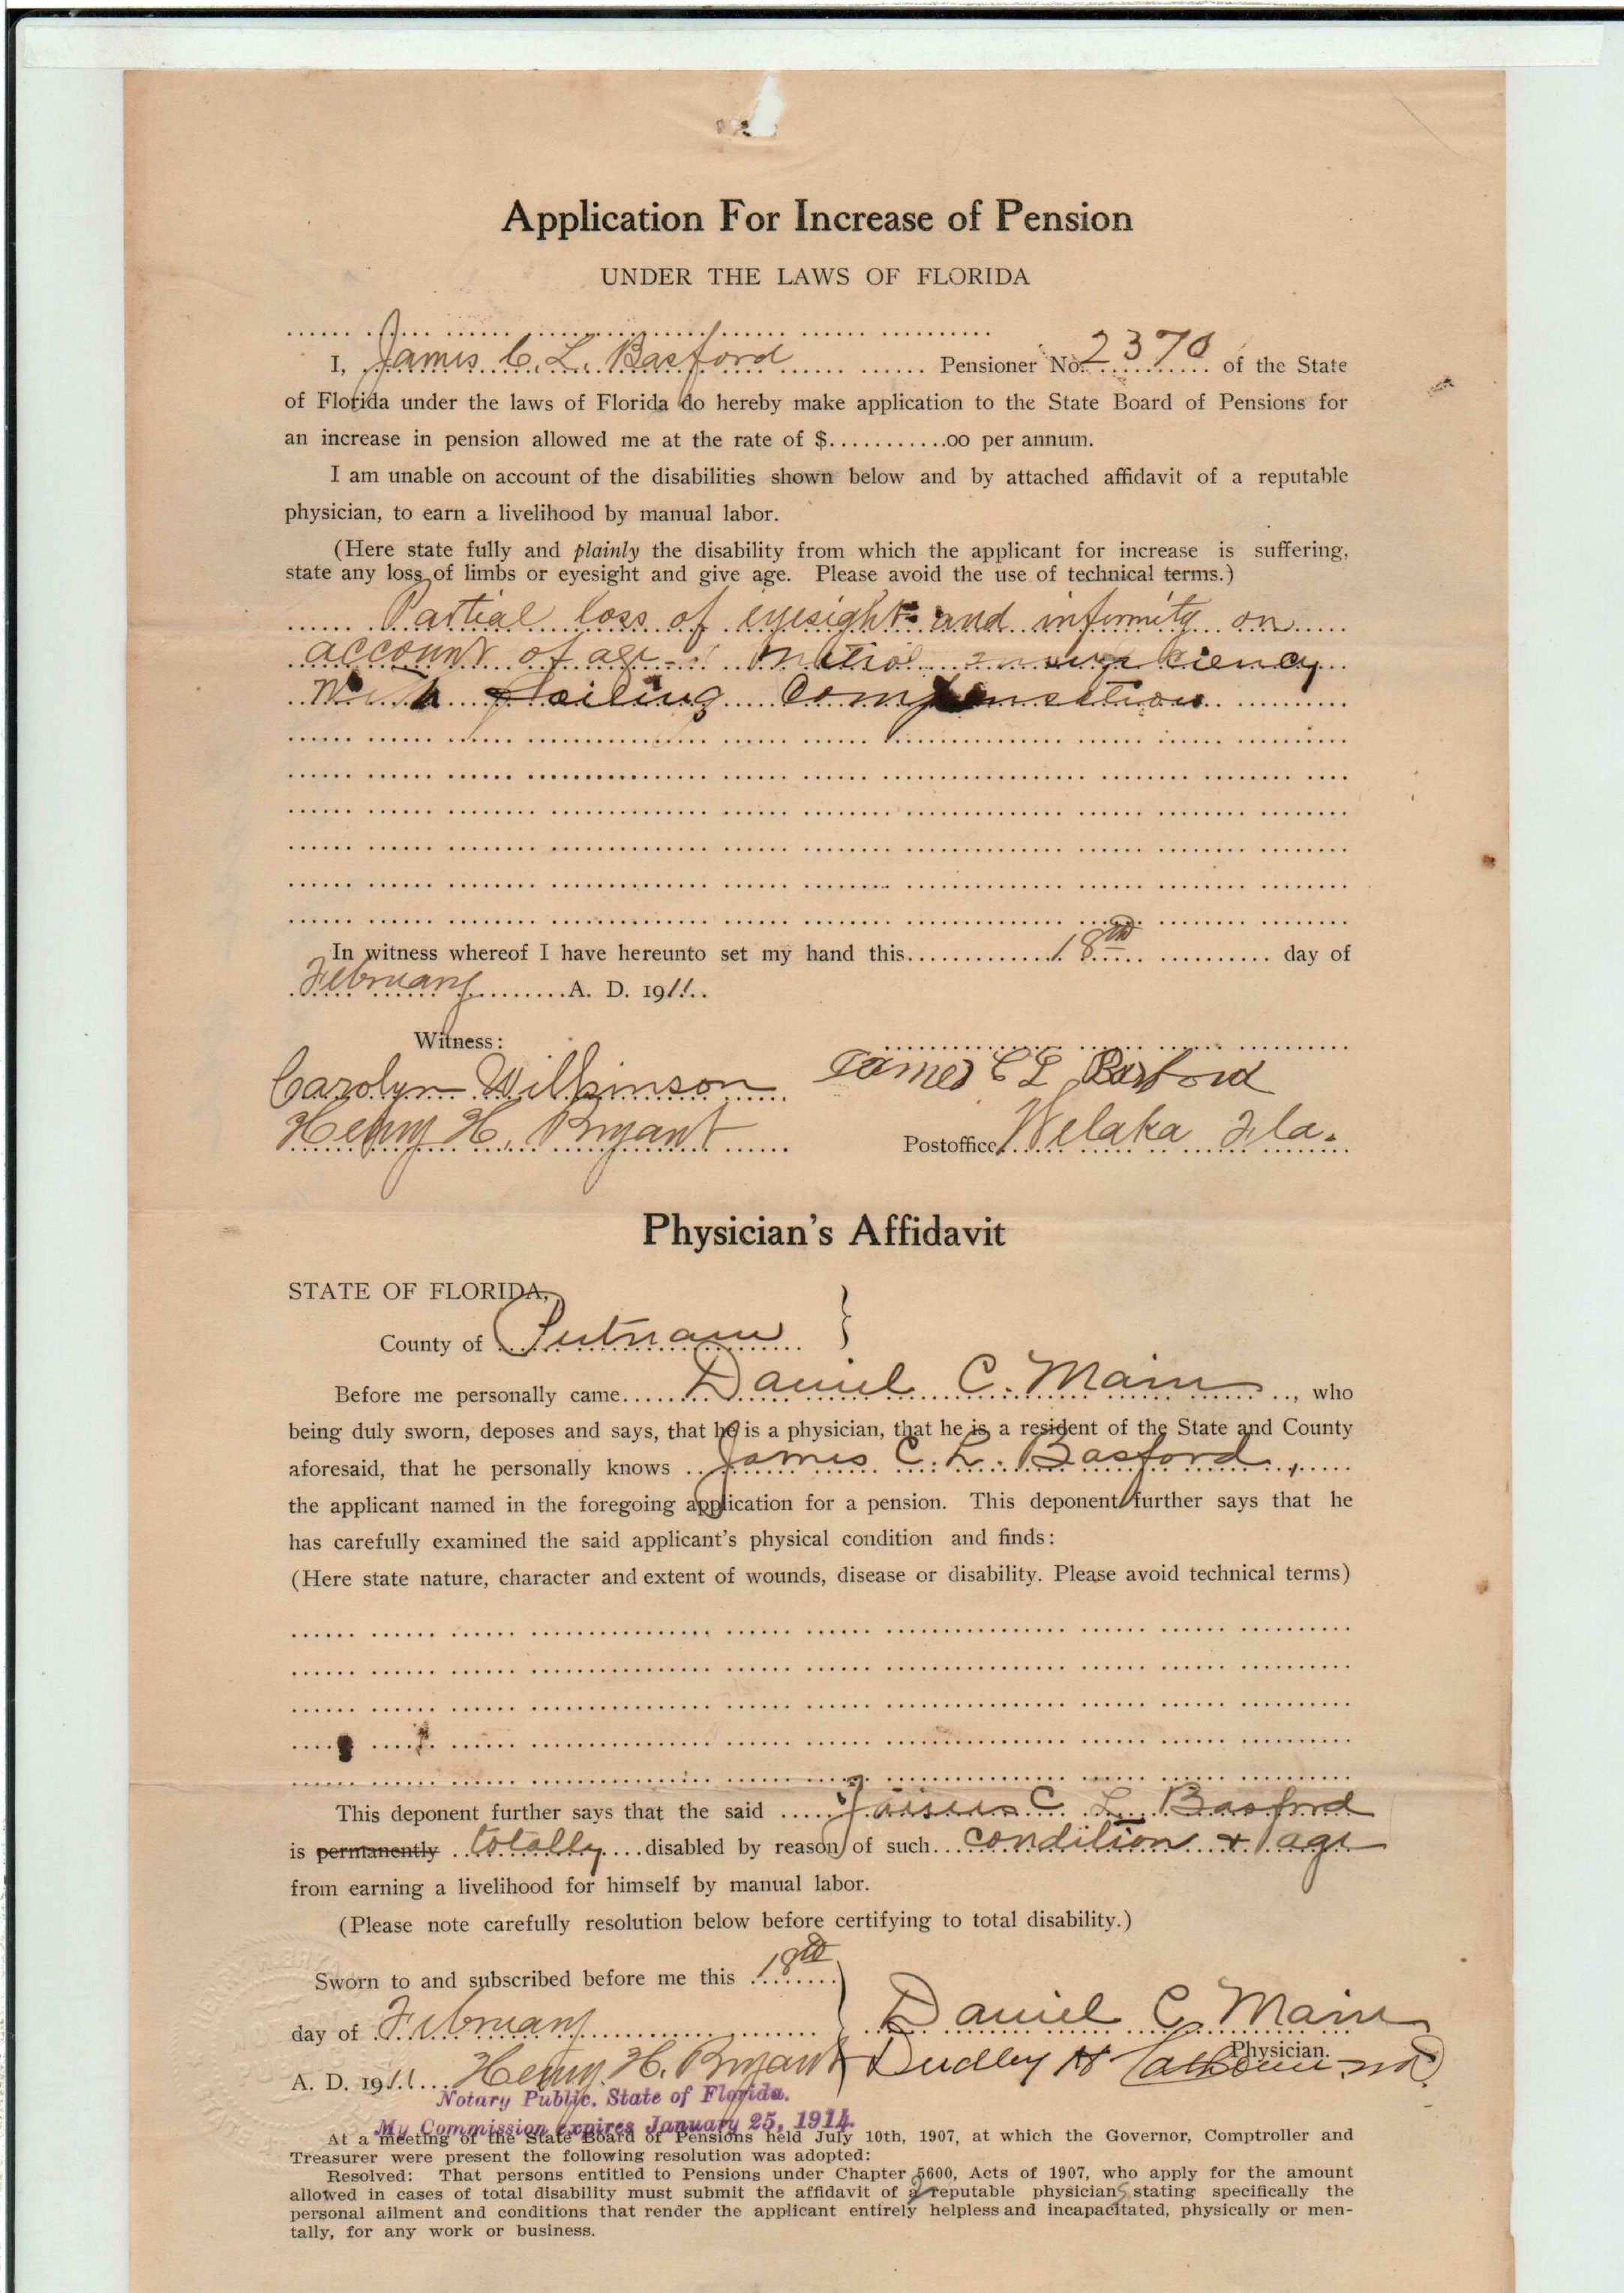 Application For Increase of Pension
UNDER THE LAWS OF FLORIDA
I, James C. L. Basford Pensioner No. 2370 of the State
of Florida under the laws of Florida do hereby make application to the State Board of Pensions for
an increase in pension allowed me at the rate of $...........00 per annum.
I am unable on account of the disabilities shown below and by attached affidavit of a reputable
physician, to earn a livelihood by manual labor.
(Here state fully and plainly the disability from which the applicant for increase is suffering,
state any loss of limbs or eyesight and give age. Please avoid the use of technical terms.)
Partial loss of eyesight and infirmity on
account of age - Mitral insufficiency
with failing Compensation
In witness whereof I have hereunto set my hand this 18th day of
February A. D. 1911
Witness:
Carolyn Wilkinson James C L Basford
Henry H. Bryant Postoffice Welaka Fla.
Physician's Affidavit
STATE OF FLORIDA,
County of Putnam }
Before me personally came Daniel C. Main, who
being duly sworn, deposes and says, that he is a physician, that he is a resident of the State and County
aforesaid, that he personally knows James C. L. Basford,
the applicant named in the foregoing application for a pension. This deponent further says that he
has carefully examined the said applicant's physical condition and finds:
(Here state nature, character and extent of wounds, disease or disability. Please avoid technical terms)
This deponent further says that the said James C L Basford
is permanently totally disabled by reason of such condition & age
from earning a livelihood for himself by manual labor.
(Please note carefully resolution below before certifying to total disability.)
Sworn to and subscribed before me this 18th
day of February Daniel C. Main
Physician.
A. D. 1911 Henry H. Bryant Dudley H Calhoun MD
Notary Public. State of Florida.
My Commission expires January 25, 1914.
At a meeting of the State Board of Pensions held July 10th, 1907, at which the Governor, Comptroller and
Treasurer were present the following resolution was adopted:
Resolved: That persons entitled to Pensions under Chapter 5600, Acts of 1907, who apply for the amount
allowed in cases of total disability must submit the affidavit of 2 reputable physicians stating specifically the
personal ailment and conditions that render the applicant entirely helpless and incapacitated, physically or men-
tally, for any work or business.